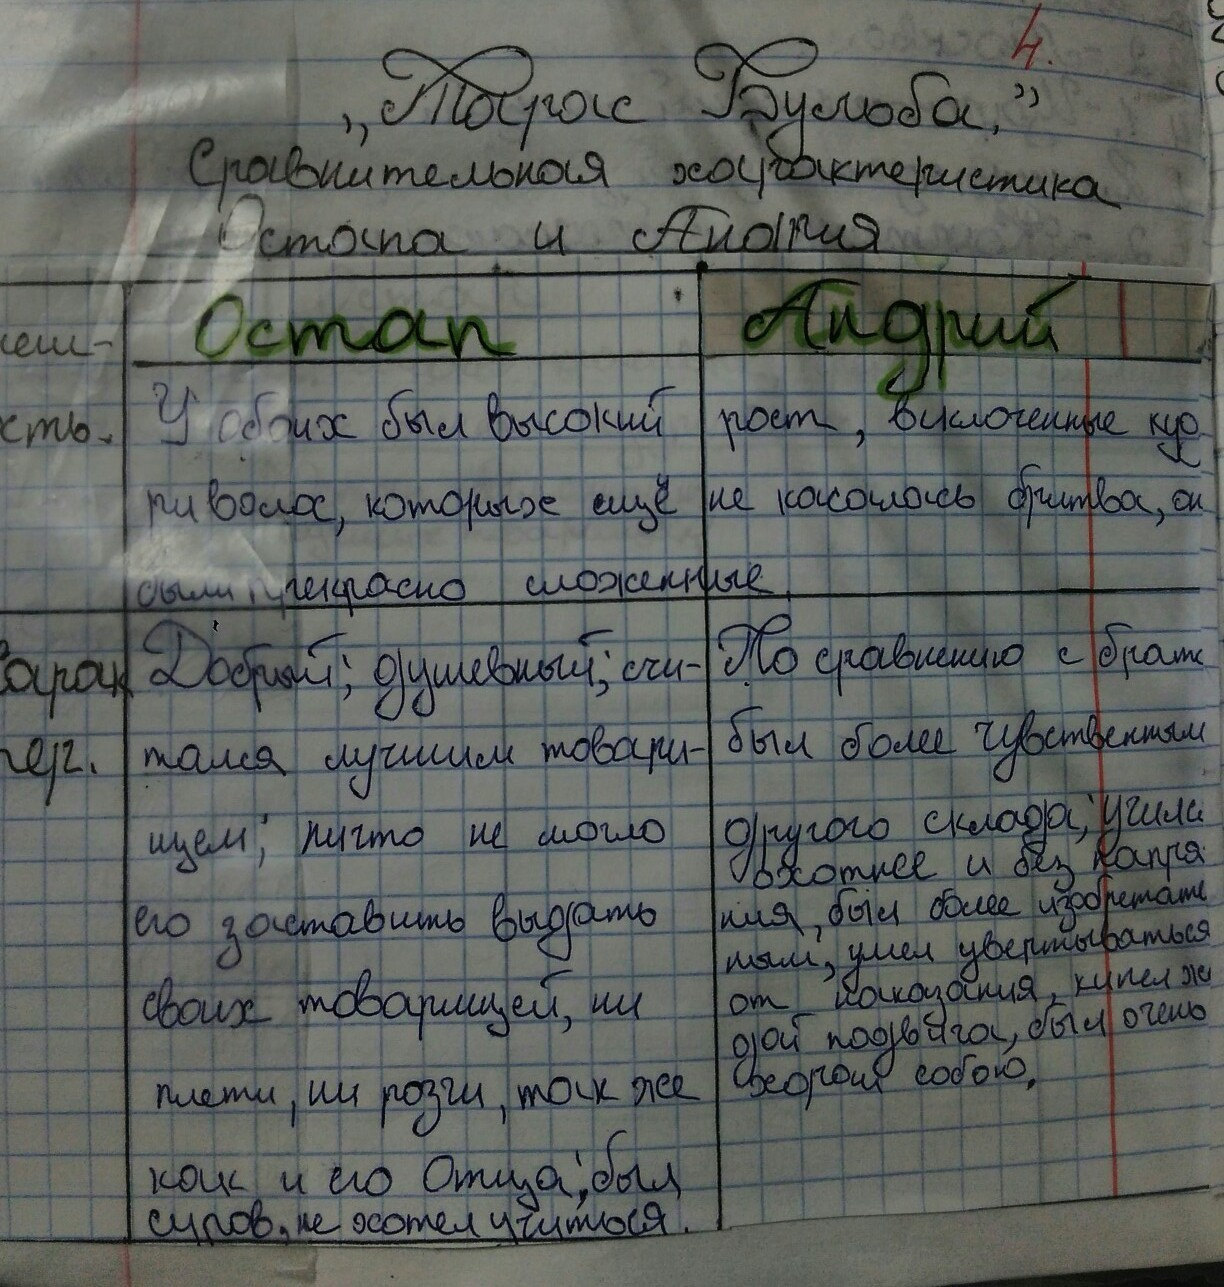 4.
„Тарас Бульба."
Сравнительная характеристика
Остапа и Андрия
Остап Андрий
сть. У обоих был высокий рост, вклоченные куд
ри волос, которых ещё не касалась бритва, он
были прекрасно сложенные.
Харак Добрый; душевный; счи-
тер. тался лучшим товари-
щем; ничто не могло
его заставить выдать
своих товарищей, ни
плети, ни розги, так же
как и его Отца; был
суров, не хотел учиться.
По сравнению с брат
был более чувственным
другого склада; учил
охотнее и без напря
ния, был более изобретате
ным, умел увертываться
от наказания, кипел жа
дой подвига, был очень
хорош собою.